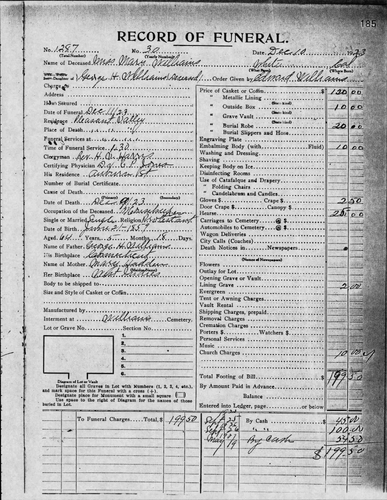 185
RECORD OF FUNERAL.
No. 1287 No. 30 Date, Dec 10 1923
(Total Number) (Yearly Number)
Name of Deceased Miss Mary Williams White
George H Williams Order Given by Edmund Williams
Charge
Address
How Secured
Date of Funeral Dec 11/23
Residence Pleasant Valley
Place of Death " "
Funeral Services at " "
Time of Funeral Service 1-30
Clergyman Rev. H. C.
Certifying Physician Dr
His Residence
Number of Burial Certificate
Cause of Death
Date of Death Dec 9 23
Occupation of the Deceased Housekeeper
Single or Married Single Religion Protestant
Date of Birth June 21-1859
Aged 64 Years 5 Months 18 Days
Name of Father George H Williams
His Birthplace Connecticut
Name of Mother Mary
Her Birthplace
Body to be shipped to
Size and Style of Casket or Coffin
Manufactured by
Interment at Williams Cemetery
Lot or Grave No. Section No.
1
2
3
4
5
6
Diagram of Lot or Vault
Designate all Graves in Lot with Numbers (1, 2, 3, 4, etc.), and mark space for this Funeral with a cross (+).
Designate place for Monument with a small square
Use space to the right of Diagram for the names of those buried in Lot.
Price of Casket or Coffin 130 00
" Metallic Lining
" Outside Box 10 00
" Grave Vault
" Burial Robe 20 00
" Burial Slippers and Hose
Engraving Plate
Embalming Body (with Fluid) 10 00
Washing and Dressing
Shaving
Keeping Body on Ice
Disinfecting Rooms
Use of Catafalque and Drapery
" Folding Chairs
" Candelabrum and Candles
Gloves $ Crape $ 2 50
Door Crape $ Canopy $
Hearse 25 00
Carriages to Cemetery @ $
Automobiles to Cemetery @ $
Wagon Deliveries
City Calls (Coaches)
Death Notices in Newspapers
(Names of Newspapers)
Flowers
Outlay for Lot
Opening Grave or Vault
Lining Grave 2 00
Evergreen
Tent or Awning Charges
Vault Rental
Shipping Charges, prepaid
Removal Charges
Cremation Charges
Porters $ Watchers $
Personal Services
Music
Church Charges
Total Footing of Bill $ 199 50
By Amount Paid in Advance
Balance
Entered into Ledger, page or below.
To Funeral Charges, Total, $ 199 50 By Cash $ 45 00
100 00
By Cash 54 50
$ 199 50